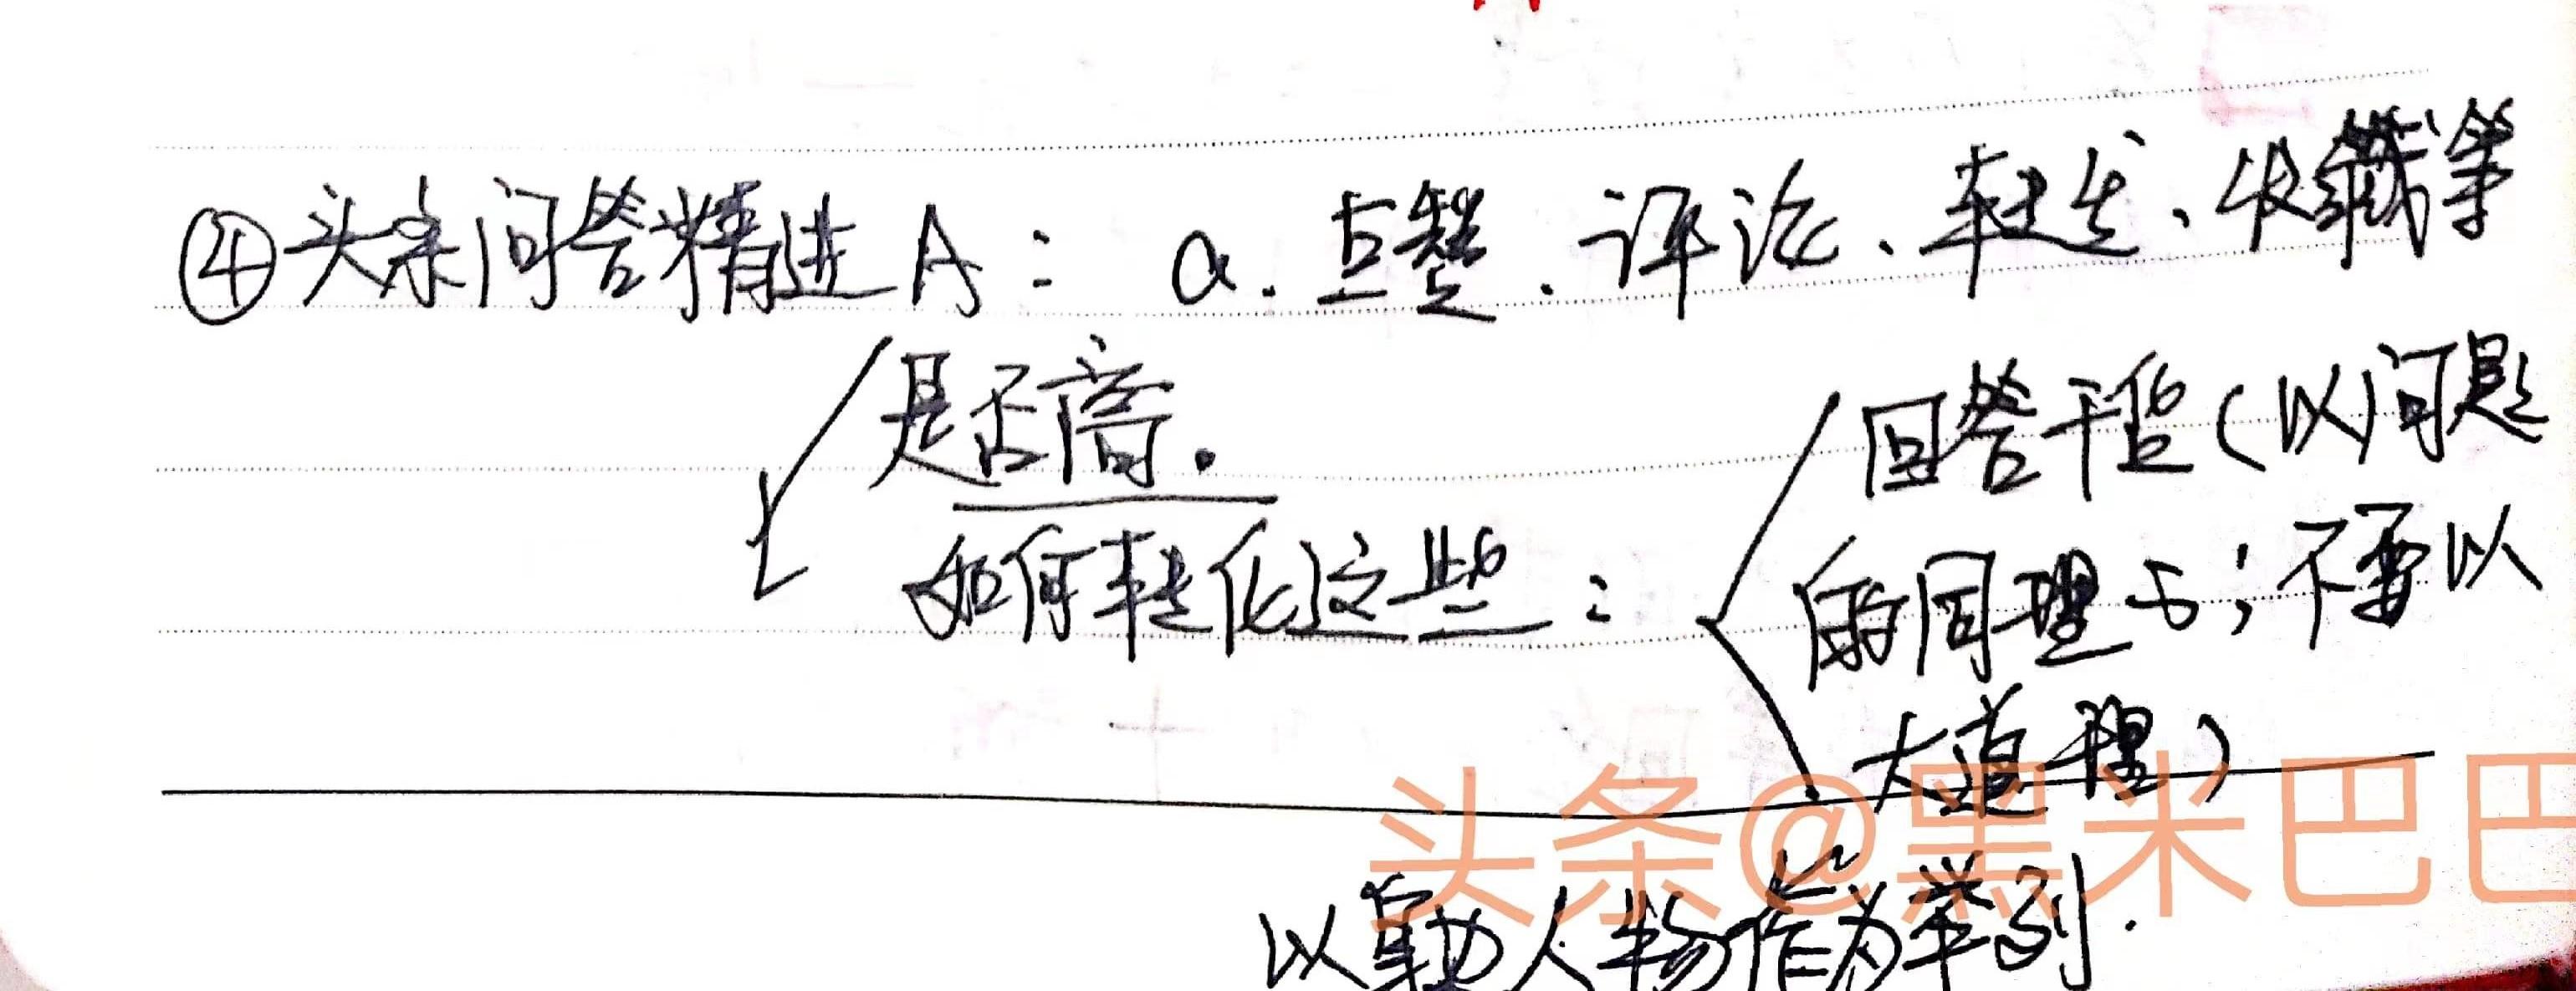 ④头条问答精进A: a.点赞.评论、转发、收藏等
是否高.
如何转化这些:
回答干货(以问题
的同理心;不要以
大道理)
以身边人物作为举例.
头条@黑米巴巴